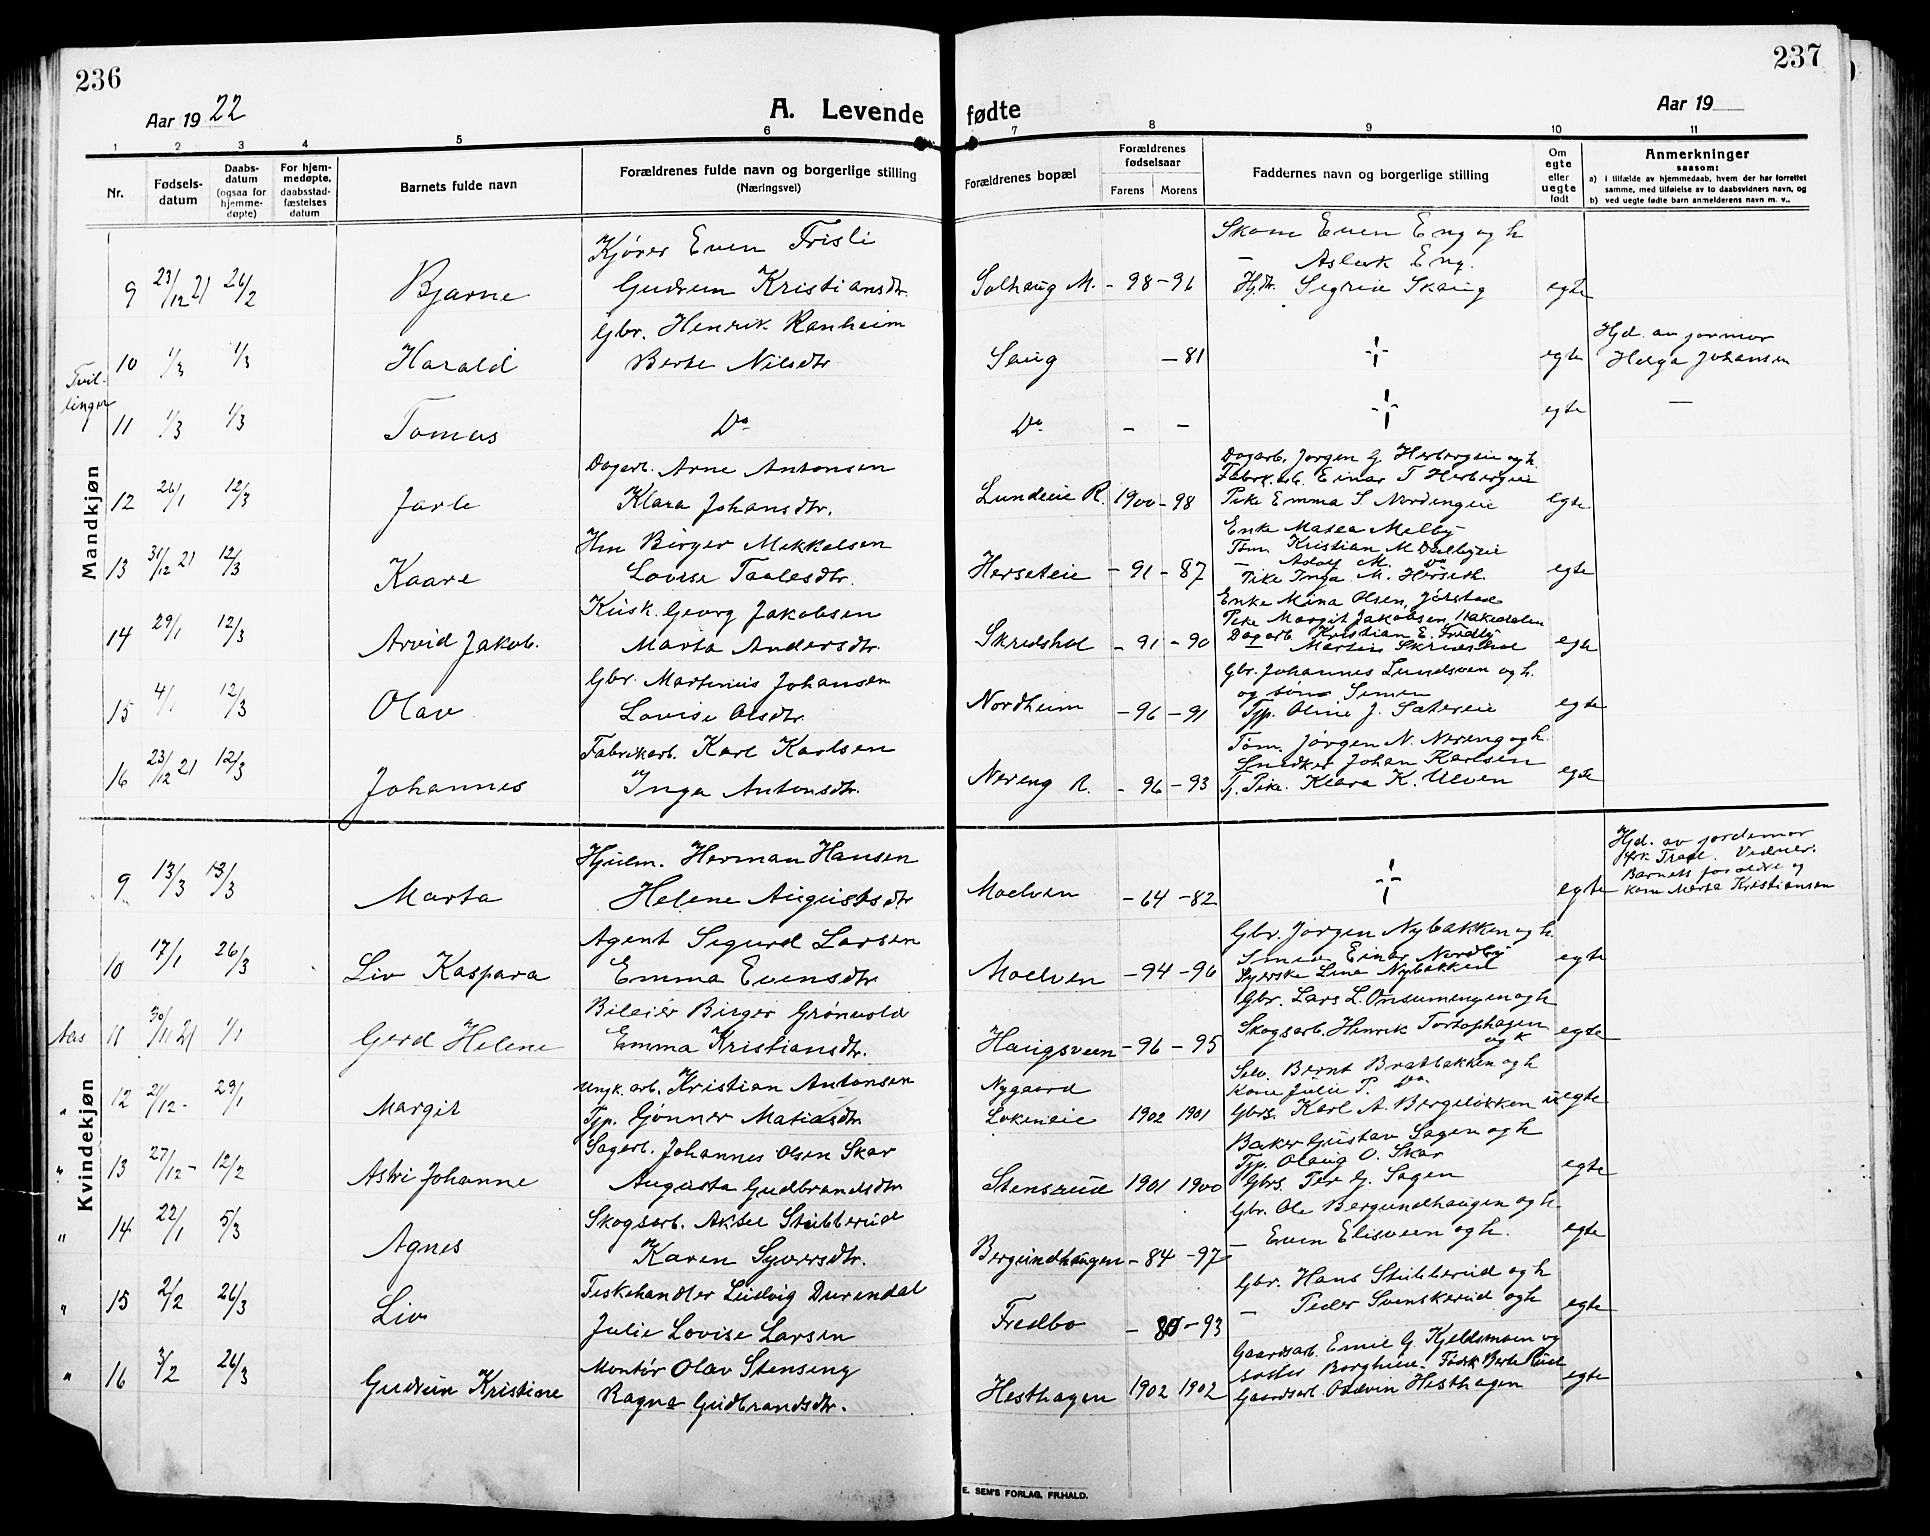 236
237
Aar 1922
A. Levende fødte
Aar 19
1 2 3 4 5 6 7 8 9 10 11
Nr.
Fødsels-datum
Daabs-datum (ogsaa for hjemme-døpte)
For hjem-medøpte, daabsstad-fæstelses datum
Barnets fulde navn
Forældrenes fulde navn og borgerlige stilling (Næringsvei)
Forældrenes bopæl
Forældrenes fødselsaar
Farens Morens
Faddernes navn og borgerlige stilling
Om egte eller uegte født
Anmerkninger
saasom:
a) i tilfælde av hjemmedaab, hvem der har forrettet samme, med tilføielse av to daabsvidners navn, og
b) ved uegte fødte barn anmelderens navn m. v..
Mandkjøn
Kjører Even Frisli
Skom Even Eng og h
— Aslerk Eng.
9 23/12 21 26/2 Bjarne Gudrun Kristiansdtr. Solhaug M. - 98 - 96 Hjdtr. Sigrid Skaug egte
Gbr. Henrik Ranheim
Hjd. av jormor
10 1/3 1/3 Harald Berte Nilsdtr Saug - 81 ÷ egte Helga Johansen
Tvil-
linger
11 1/3 1/3 Tomas Do Do - - ÷ egte —
Dagarb. Arne Antonsen
Dagarb. Jørgen G Herbergeie og h.
Fabrk.arb. Einar T Herbergeie
12 26/1 12/3 Jarle Klara Johansdtr. Lundeie R. 1900 - 98 Pike Emma S Nordengeie egte
Hm Birger Mikkelsen
Enke Masea Melby
Tøm. Kristian M Dælbyeie
— Adolf M. Do
13 31/12 21 12/3 Kaare Lovise Taalesdtr. Herseteie - 91 - 87 Pike Inga M. Herseth. egte
Kusk. Georg Jakobsen
Enke Mina Olsen, Jørstad
Pike Margit Jakobsen, Hakedalen
Dagarb Kristian E. Fredby
14 29/1 12/3 Arvid Jakob. Marta Andersdtr. Skredshol - 91 - 90 — Martin Skredshol egte
Gbr. Martinius Johansen
Gbr. Johannes Lundsven og h.
og søn Simen
15 4/1 12/3 Olav Lovise Olsdtr. Nordheim - 96 - 91 Tjp. Oline J. Sætereie egte
Fabrikarb. Karl Karlsen
Tøm. Jørgen N. Nereng og h.
Snedker Johan Karlsen
16 23/12 21 12/3 Johannes Inga Antonsdtr. Nereng R. - 96 - 93 Tj. Pike. Klara K. Ulven egte
Kvindekjøn
Hjulm. Herman Hansen
Hjd. av jordemor
frk. Trad. Vidner.
Barnets forældre og
9 13/3 13/3 Marta Helene Augustsdtr Moelven - 64 - 82 ÷ egte kone Marta Kristiansen
Agent Sigurd Larsen
Gbr. Jørgen Nybakken og h.
Smed Einar Nordby
10 17/1 26/3 Liv Kaspara Emma Evensdtr Moelven - 94 - 96 Syerske Lina Nybakken egte
Bileier Birger Grønvold
Gbr. Lars L. Onsumengen og h
Aas 11 30/11 21 1/1 Gerd Helene Emma Kristiansdtr. Haugsveen - 96 - 95 Skogsarb. Henrik Tortophagen og k egte
Ungk. arb. Kristian Antonsen
Nygaard
Selv. Bernt Bratbakken og h
Kone Julie P. Do
" 12 21/12 - 29/1 Margit Tjp. Gønner Matiasdtr Lokeneie 1902 1901 Gbrs. Karl A. Bergeløkken uegte
Sagarb. Johannes Olsen Skar
Baker Gustav Sagen og h
Tjp. Olaug O. Skar
" 13 27/12 - 12/2 Astri Johanne Augusta Gudbrandsdtr Stensrud 1901 1900 Gbrs. Per G. Sagen egte
Skogsarb. Aksel Stubberud
Gbr. Ole Bergundhaugen og h.
" 14 22/1 5/3 Agnes Karen Syversdtr. Bergundhaugen - 84 - 97 — Even Elisveen og h. egte
Fiskehandler Ludvig Durendal
Gbr. Hans Stubberud og h
" 15 2/2 26/3 Liv Julie Lovise Larsen Fredbo - 80 - 93 — Peder Svenskerud og h egte
Montør Olav Stenseng
Gaardsarb. Emil G. Kjeldsmoen og
søster Borghild. Födsk. Berte Rud
" 16 3/2 26/3 Gudrun Kristine Ragna Gudbrandsdtr. Hesthagen 1902 1902 Gaardsarb. Oddvin Hesthagen egte
E. SEM'S FORLAG, FR.HALD.